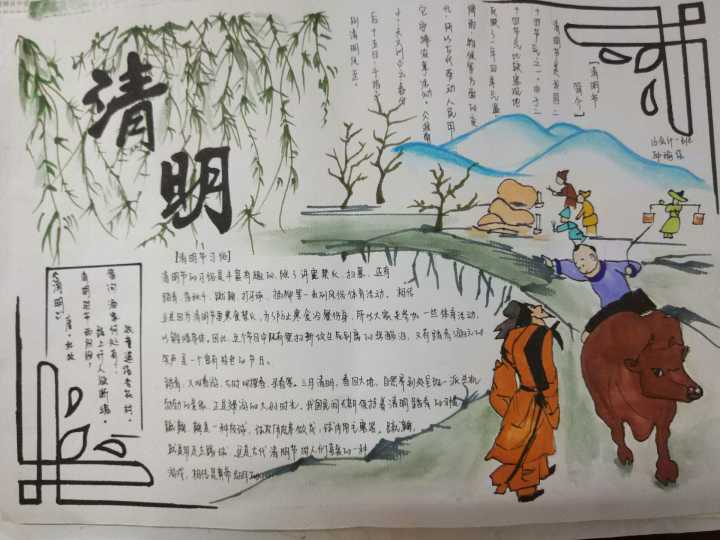 清明
【清明节
简介】
清明节是我国二
十四节气之一。由于二
十四节气比较客观地
反映了一年四季气温、
降雨、物候等方面的变
化，所以古代劳动人民用
它安排农事活动。《淮南
子·天文训》云：春分
后十五日，斗指乙，
则清明风至。
《清明》
唐·杜牧
清明时节雨纷纷，
路上行人欲断魂。
借问酒家何处有？
牧童遥指杏花村。
【清明节习俗】
清明节的习俗是丰富有趣的，除了讲究禁火、扫墓，还有
踏青、荡秋千、蹴鞠、打马球、插柳等一系列风俗体育活动。相传
这是因为清明节要寒食禁火，为了防止寒食冷餐伤身，所以大家来参加一些体育活动，
以锻炼身体。因此，这个节日中既有祭扫新坟生死离别的悲酸泪，又有踏青游玩的
笑声，是一个富有特色的节日。
踏青：又叫春游，古时叫探春、寻春等。三月清明，春回大地，自然界到处呈现一派生机
勃勃的景象，正是郊游的大好时光。我国民间长期保持着清明踏青的习惯。
蹴鞠：鞠是一种皮球，球皮用皮革做成，球内用毛塞紧。蹴鞠，
就是用足去踢球。这是古代清明节时人们喜爱的一种
游戏。相传是黄帝发明的